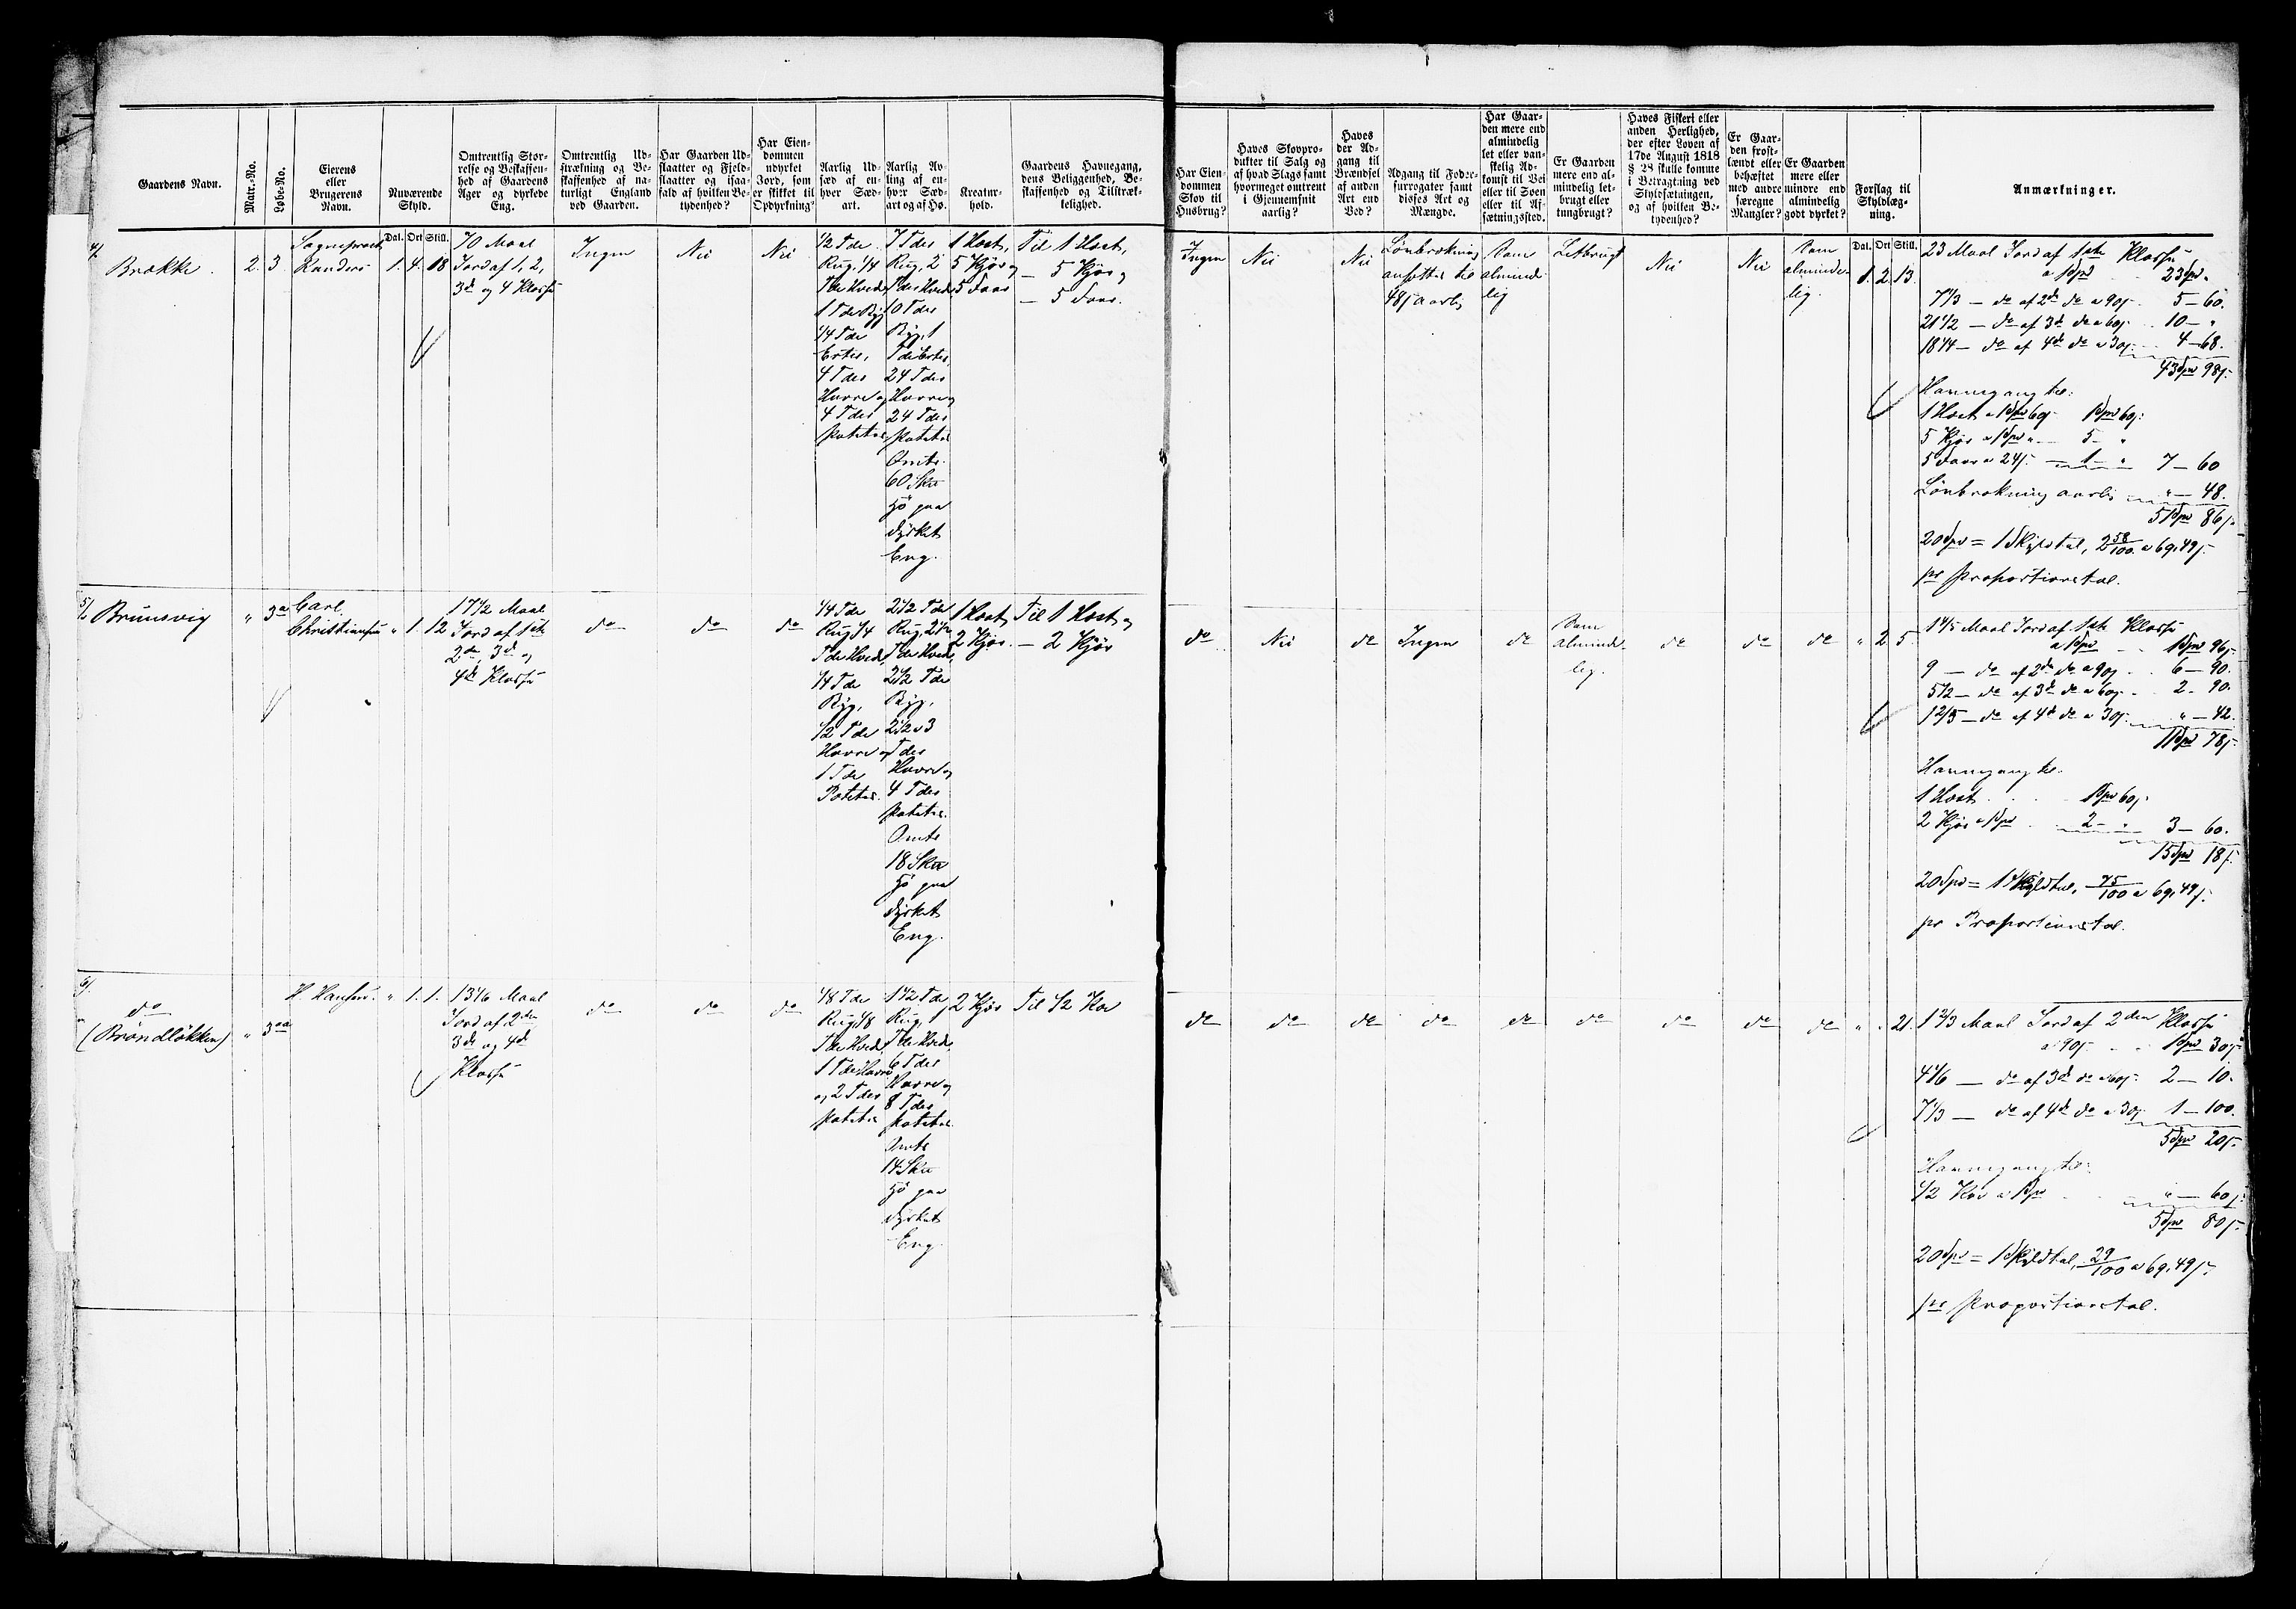 Gaardens Navn.
Matr.-No.
Løbe-No.
Eierens
eller
Brugerens
Navn.
Nuværende
Skyld.
Dal. Ort Skill.
Omtrentlig Stør-
relse og Beskaffen-
hed af Gaardens
Ager og dyrkede
Eng.
Omtrentlig Ud-
strækning og Be-
skaffenhed af na-
turligt England
ved Gaarden.
Har Gaarden Ud-
slaatter og Fjeld-
slaatter og ifaa-
fald af hvilken Be-
tydenhed?
Har Eien-
dommen
udyrket
Jord, som
er skikket til
Opdyrkning?
Aarlig Ud-
sæd af en-
hver Sæd-
art.
Aarlig Av-
ling af en-
hver Sæd-
art og af Hø.
Kreatur-
hold.
Gaardens Havnegang,
dens Beliggenhed, Be-
skaffenhed og Tilstræk-
kelighed.
Har Eien-
dommen
Skov til
Husbrug?
Haves Skovpro-
dukter til Salg og
af hvad Slags samt
hvormeget omtrent
i Gjennemsnit
aarlig?
Haves
der Ad-
gang til
Brændsel
af anden
Art end
Ved?
Adgang til Foder-
surrogater samt
disses Art og
Mængde.
Har Gaar-
den mere end
almindelig
let eller van-
skelig Ad-
komst til Vei
eller til Søen
eller til Af-
sætningssted.
Er Gaarden
mere end al-
mindelig let-
brugt eller
tungbrugt?
Haves Fiskeri eller
anden Herlighed,
der efter Loven af
17de August 1818
§ 28 skulle komme
i Betragtning ved
Skyldsætningen,
og af hvilken Be-
tydenhed?
Er Gaar-
den frost-
lændt eller
behæftet
med andre
særegne
Mangler?
Er Gaarden
mere eller
mindre end
almindelig
godt dyrket?
Forslag til
Skyldlæg-
ning.
Dal. Ort Skill.
Anmærkninger.
4/
Brække.
2. 3.
Sogneprest
Randers
1. 4. 18
70 Maal
Jord af 1, 2,
3de og 4 Klasse
Ingen
Nei
Nei
1/2 Tde
Rug, 1/4
Tde Hvede
1 Tde Byg
1/4 Tde
Erter,
4 Tdes
Havre og
4 Tdes
Poteter
7 Tdes
Rug, 2
Tdes Hvede
10 Tdes
Byg, 1
Tde Erter,
24 Tdes
Havre og
24 Tdes
Poteter
Omtr.
60 Skπ
Hø paa
dyrket
Eng.
1 Hest,
5 Kjør og
5 Faar
Til 1 Hest,
— 5 Kjør og
— 5 Faar.
Ingen
Nei
Nei
Lønbrækning
ansettes til
48s aarlig
Som
almind-
lig
Letbrugt
Nei
Nei
Som
alminde-
lig.
1. 2. 13.
23 Maal Jord af 1ste Klasse
a 1Spd 23Spd "
7 1/3 — do af 2de do a 90s. 5 — 60.
21 1/2 — do af 3de do a 60s. 10 — "
18 1/4 — do af 4de do a 30s. 4 — 68.
43Spd 98s.
Havnegang til:
1 Hest a 1Spd 60s 1Spd 60s.
5 Kjør a 1Spd " — 5 — "
5 Faar a 24s. — 1 — " 7 — 60
Lønbrækning aarlig " — 48.
51Spd 86s.
20Spd = 1 Skyldtal, 2 58/100 a 69,49s.
pr Proportionstal.
5/
Brunsvig
" 3a
Carl
Christiansen
" 1. 12
17 1/2 Maal
Jord af 1ste
2de, 3de og
4de Klasse
do
do
do
1/4 Tde
Rug 1/4
Tde Hvede,
1/4 Tde
Byg,
1/2 Tde
Havre og
1 Tde
Poteter.
2 1/2 Tde
Rug, 2 1/2
Tde Hvede,
2 1/2 Tde
Byg,
2 1/2 a 3
Tdes
Havre og
4 Tdes
Poteter.
Omtr
18 Skπ
Hø paa
dyrket
Eng.
1 Hest,
2 Kjør.
Til 1 Hest og
— 2 Kjør
do
Nei
do
Ingen
do
Som
alminde-
lig.
do
do
do
" 2. 5.
1 4/5 Maal Jord af 1ste Klasse
a 1Spd 1Spd 96s.
9 — do af 2de do a 90s. 6 — 90.
5 1/2 — do af 3de do a 60s. 2. 90.
1 2/5 — do af 4de do a 30s. " — 42.
11Spd 78s.
Havnegang til.
1 Hest 1Spd 60s.
2 Kjør a 1Spd 2 — " 3 — 60.
15Spd 18s.
20Spd = 1 Skyldtal, 75/100 a 69,49s.
pr Proportionstal.
6/.
do
(Brøndløkken)
" 3aa
H. Hansen.
" 1. 1.
13 1/6 Maal
Jord af 2den
3de og 4de
Klasse
do
do
do
1/8 Tde
Rug, 1/8
Tde Hvede,
1 Tde Havre
og 2 Tdes
Poteter
1 1/2 Tde
Rug, 1
Tde Hvede,
6 Tdes
Havre og
8 Tdes
Poteter.
Omtr
14 Skπ
Hø paa
dyrket
Eng.
2 Kjør
Til 1/2 Ko
do
do
do
do
do
do
do
do
do
" " 21.
1 2/3 Maal Jord af 2den Klasse
a 90s. 1Spd 30s
4 1/6 — do af 3de do a 60s. 2 — 10.
7 1/3 — do af 4de do a 30s. 1 — 100.
5Spd 20s.
Havnegang til:
1/2 Ko a 1Spd " — 60s.
5Spd 80s.
20Spd = 1 Skyldtal, 29/100 a 69,49s.
pr Proportionstal.